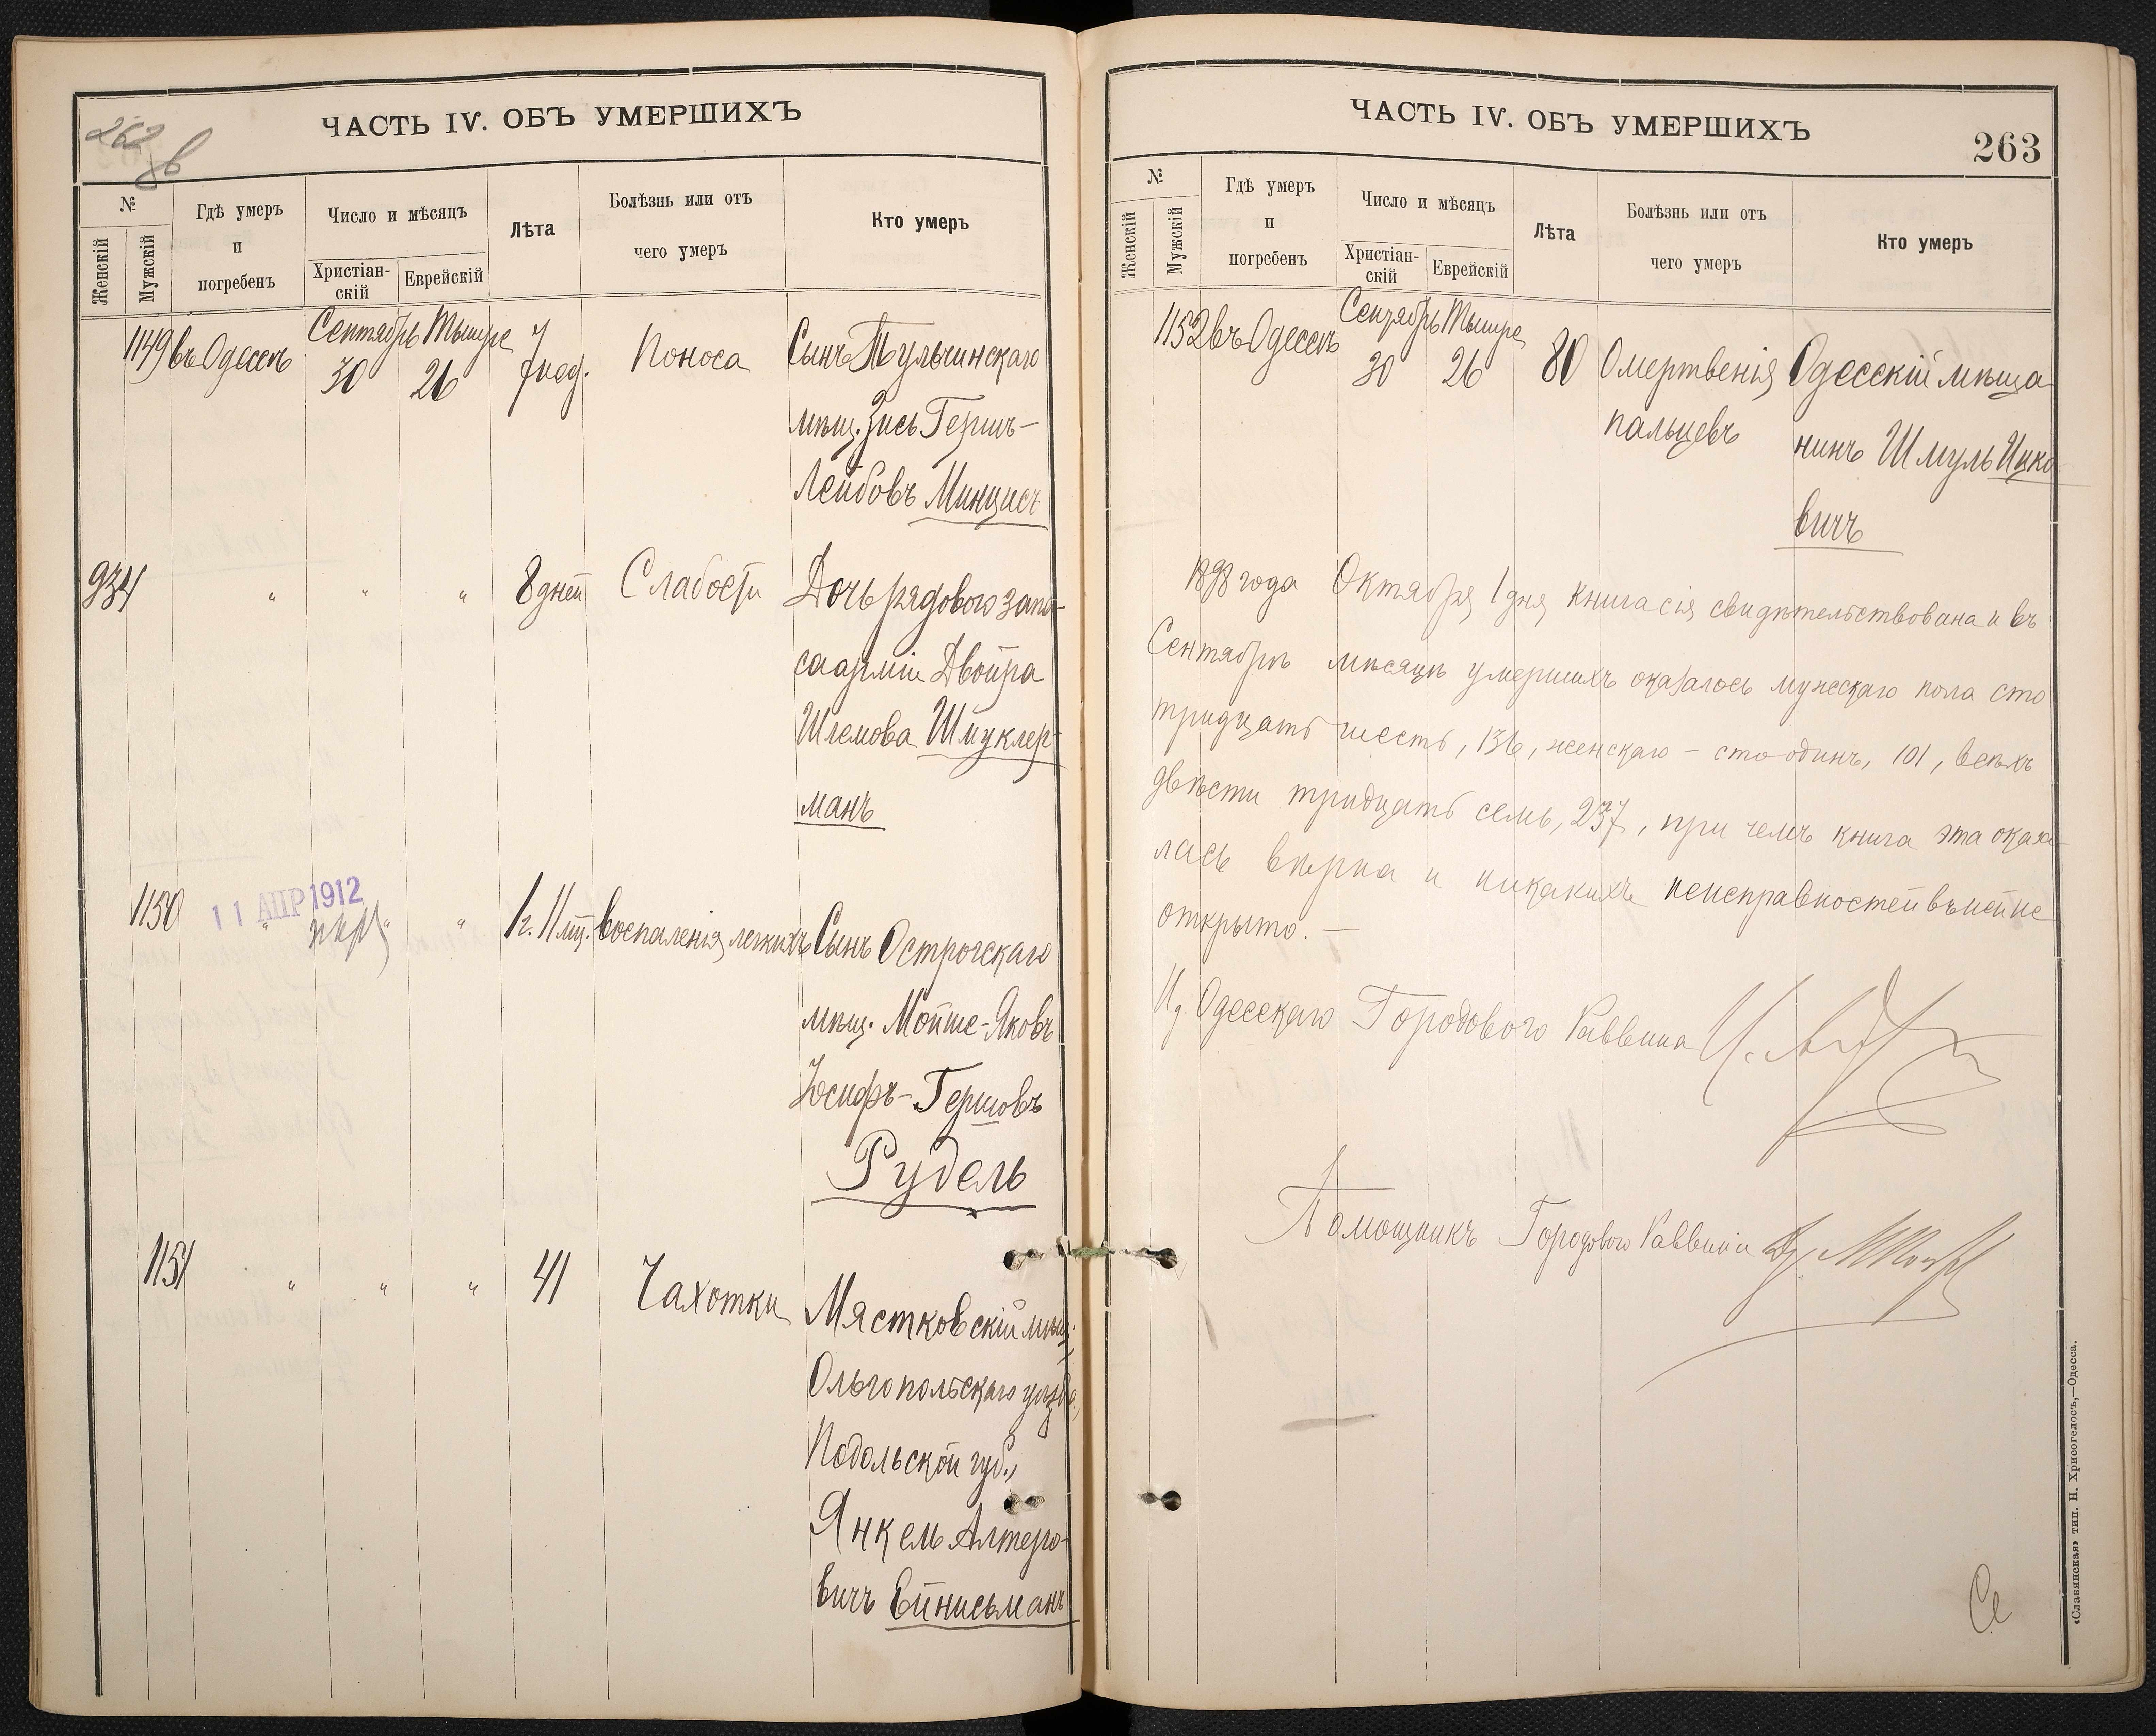 262
ЧАСТЬ IV. ОБЪ УМЕРШИХЪ
№
Женскій
Мужскій
Гдѣ умеръ
и
погребенъ
Число и мѣсяцъ
Христіан-
скій
Еврейскій
Лѣта
Болѣзнь или отъ
чего умеръ
Кто умеръ
1149 въ Одессѣ Сентябрь 30 Тышре 26 7 нед. Поноса Сынъ Тульчинскаго
мѣщ. Зись Гершъ-
Лейбовъ Минцисъ
934 " " " 8 дней Слабости Дочь рядового запа-
са арміи Двойра
Шлемова Шмуклер-
манъ
1150 11 АПР 1912 " " " 1 г. 11 мц. воспаленія легкихъ Сынъ Острогскаго
мѣщ. Мойше-Яковъ
Іосифъ-Гершовъ
Рудель
1151 " " " 41 Чахотки Мястковскій мѣщ.
Ольгопольскаго уѣзда,
Подольской губ.,
Янкель Алтеро-
вичъ Ейнисьманъ
ЧАСТЬ IV. ОБЪ УМЕРШИХЪ
263
№
Женскій
Мужскій
Гдѣ умеръ
и
погребенъ
Число и мѣсяцъ
Христіан-
скій
Еврейскій
Лѣта
Болѣзнь или отъ
чего умеръ
Кто умеръ
1152 въ Одессѣ Сентябрь 30 Тышре 26 80 Омертвенія Одесскій мѣща
пальцевъ нинъ Шмуль Ицко
вичъ
1898 года Октября 1 дня книга сія свидѣтельствована и въ
Сентябрѣ мѣсяцѣ умершихъ оказалось мужескаго пола сто
тридцать шесть, 136, женскаго - сто одинъ, 101, всѣхъ
двѣсти тридцать семь, 237, при чемъ книга эта оказа-
лась вѣрна и никакихъ неисправностей въ ней не
открыто. —
И д. Одесскаго Городового Раввина
Помощникъ Городового Раввина
«Славянская» тип. Н. Хрисогелосъ,—Одесса.